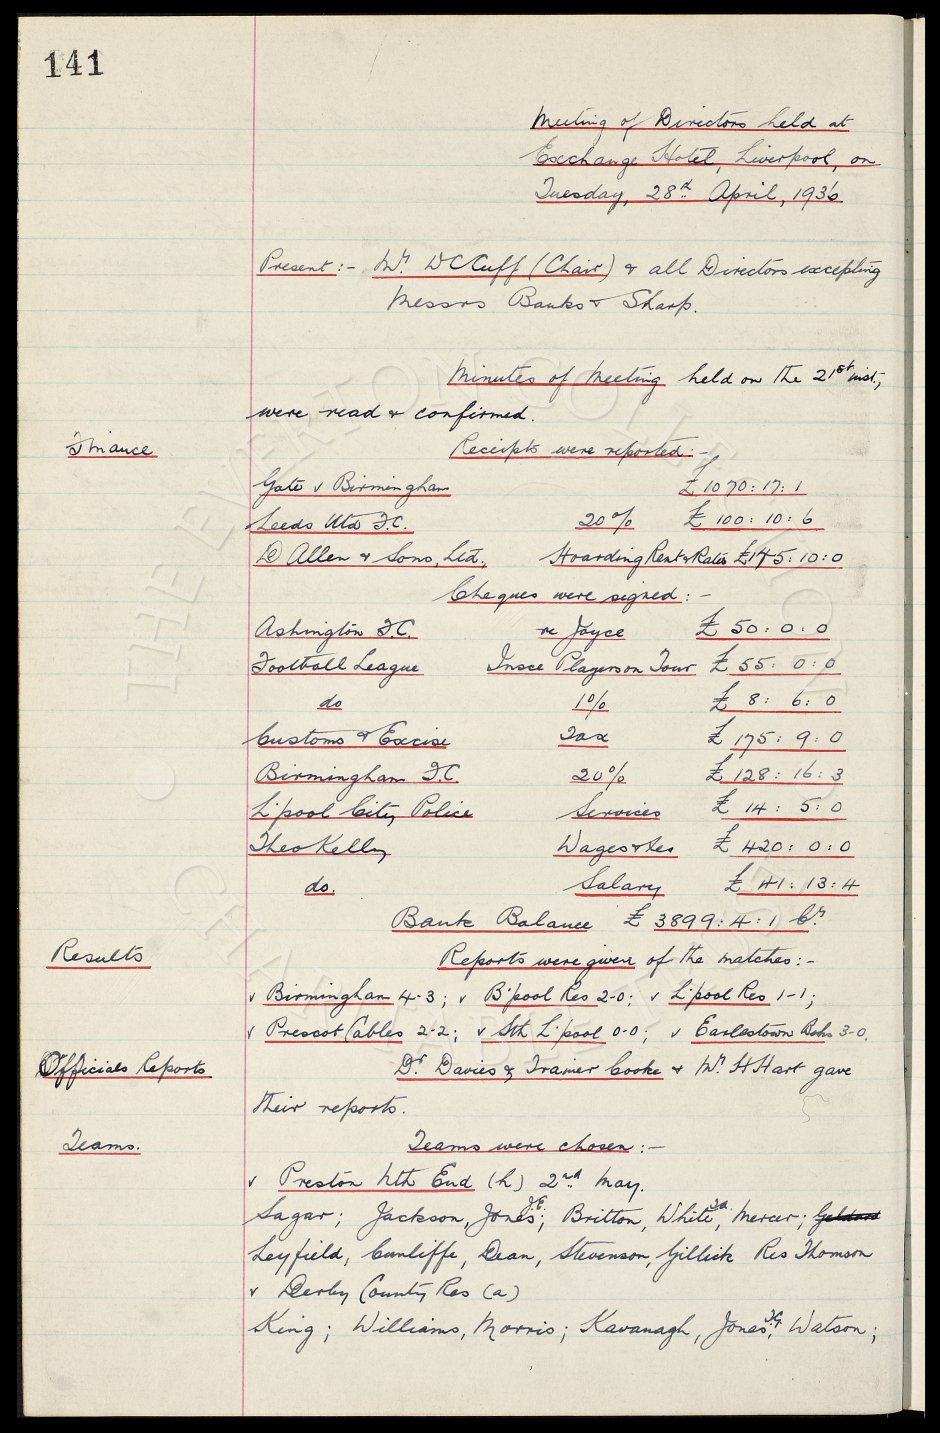 141
Meeting of Directors held at
Exchange Hotel, Liverpool, on
Tuesday, 28th April, 1936
Present:- Mr. W C Cuff (Chair) & all Directors excepting
Messrs Banks & Sharp.
Minutes of Meeting held on the 21st inst.,
were read & confirmed.
Finance Receipts were reported:-
Gate v Birmingham £1070:17:1
Leeds Utd F.C. 20% £100:10:6
D Allen & Sons, Ltd., Hoarding Rent & Rates £145:10:0
Cheques were signed:-
Ashington F.C. re Joyce £50:0:0
Football League Insce Players on Tour £55:0:0
do 1% £8:6:0
Customs & Excise Tax £175:9:0
Birmingham F.C. 20% £128:16:3
L'pool City Police Services £14:5:0
Theo Kelly Wages &c £420:0:0
do. Salary £41:13:4
Bank Balance £3899:4:1 Cr.
Results Reports were given of the matches:-
v Birmingham 4-3; v B'pool Res 2-0; v L'pool Res 1-1;
v Prescot Cables 2-2; v Sth L'pool 0-0; v Earlestown Bohs 3-0.
Officials Reports Dr. Davies & Trainer Cooke & Mr. H Hart gave
their reports.
Teams. Teams were chosen:-
v Preston Nth End (h) 2nd May.
Sagar; Jackson, Jones J.E.; Britton, White, Mercer; Geldard
Leyfield, Cunliffe, Dean, Stevenson, Gillick Res Thomson
v Derby County Res (a)
King; Williams, Morris; Kavanagh, Jones T.G., Watson;
THE EVERTON COLLECTION CHARITABLE TRUST